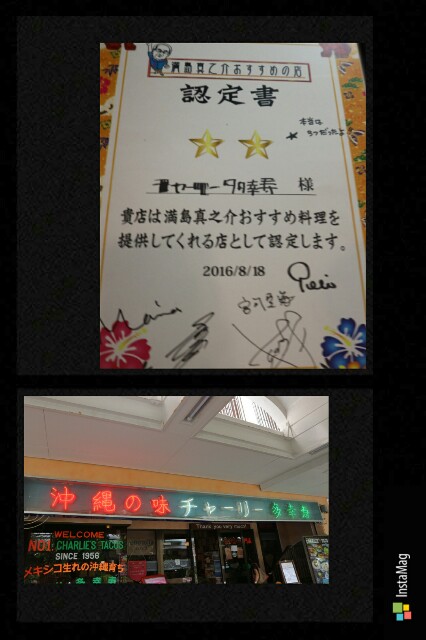 満島真之介おすすめの店
認定書
本当は
3つだったよ!
チャーリー多幸寿 様
貴店は満島真之介おすすめ料理を
提供してくれる店として認定します。
2016/8/18
沖縄の味 チャーリー多幸寿
Thank you very much!
WELCOME
NO1 CHARLIE'S TACOS
SINCE 1956
メキシコ生れの沖縄育ち
多幸寿
InstaMag